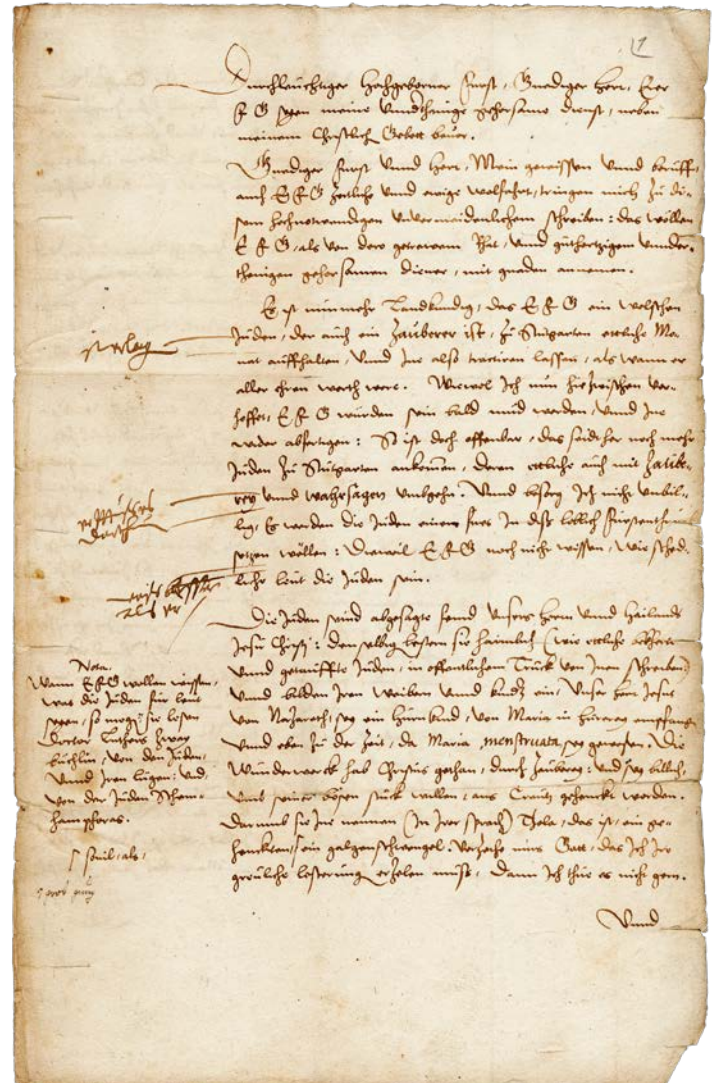 1
Durchleuchtiger Hochgeborner Fürst, Gnediger Herr, Ewer
F G seyen meine Underthenige gehorsame dienst, neben
meinem Christlich Gebett bevor.
Gnediger Fürst Vnnd Herr, Mein gewissen Vnnd beruff,
auch E F G zeitliche Vnnd ewige wolfahrt, tringen mich zu di-
sem hochnotwendigen Unvermeidenlichem schreiben: das wöllen
E F G, als von dero getrewem Rhat, Vnnd gutthertzigem Vnnder-
thenigen gehorsamen diener, mit gnaden annemen.
Es ist nunmehr Landkündig, das E F G ein welschen
Juden, der auch ein Zauberer ist, zu Stutgarten ettliche Mo-
nat auffhalten, Vnnd Jne also tractiren lassen, als wann er
aller ehren werth were. Wiewol Jch nun hiezwischen ver-
hoffet, E F G würden sein bald müd werden, Vnnd Jne
wider abfertigen: So ist doch offenbar, das seidther noch mehr
Juden zu Stutgarten ankomen, deren ettliche auch mit Zaube-
rey Vnnd wahrsagen umbgehn. Vnnd besorg Jch nicht Unbil-
lig, Es werden die Juden einen fuess Jn diss loblich Fürstenthumb
setzen wöllen: Dieweil E F G noch nicht wissen, wie sched-
liche leut die Juden sein.
Die Juden seind abgesagte feind Unsers Herrn Vnnd Hailands
Jesu Christj: den selbigen lestern sie haimlich (wie ettliche bekherte
Vnnd getauffte Juden, in offentlichem Truck von Jnen schreiben)
Vnnd bilden Jren Weiben Vnnd kindern ein, Unser Herr Jesus
von Nazareth, sey ein hurnkind, von Maria in hurerey empfangen
Vnnd eben zu der Zeit, da Maria menstruata sey gewesen. Die
Wunderwerck hab Christus gethan, durch Zauberey: und sey billich,
umb seiner bösen stück willen, ans Creutz gehenckt worden.
Darumb sie Jne nennen (Jn Jrer sprach) Thola, das ist, ein ge-
henckten, ein galgenschwengel. Verzeihe mirs Gott, das Jch Jre
greuliche lesterung erzelen muss, Dann Jch thue es nicht gern.
Vnnd
Nota.
Wann E F G wollen wissen,
was die Juden für leut
seyen, so mögen sie lesen
Doctor Luthers zwey
büchlin, Von den Juden,
Vnnd Jren lügen: und
von der Juden Schem-
hamphoras.